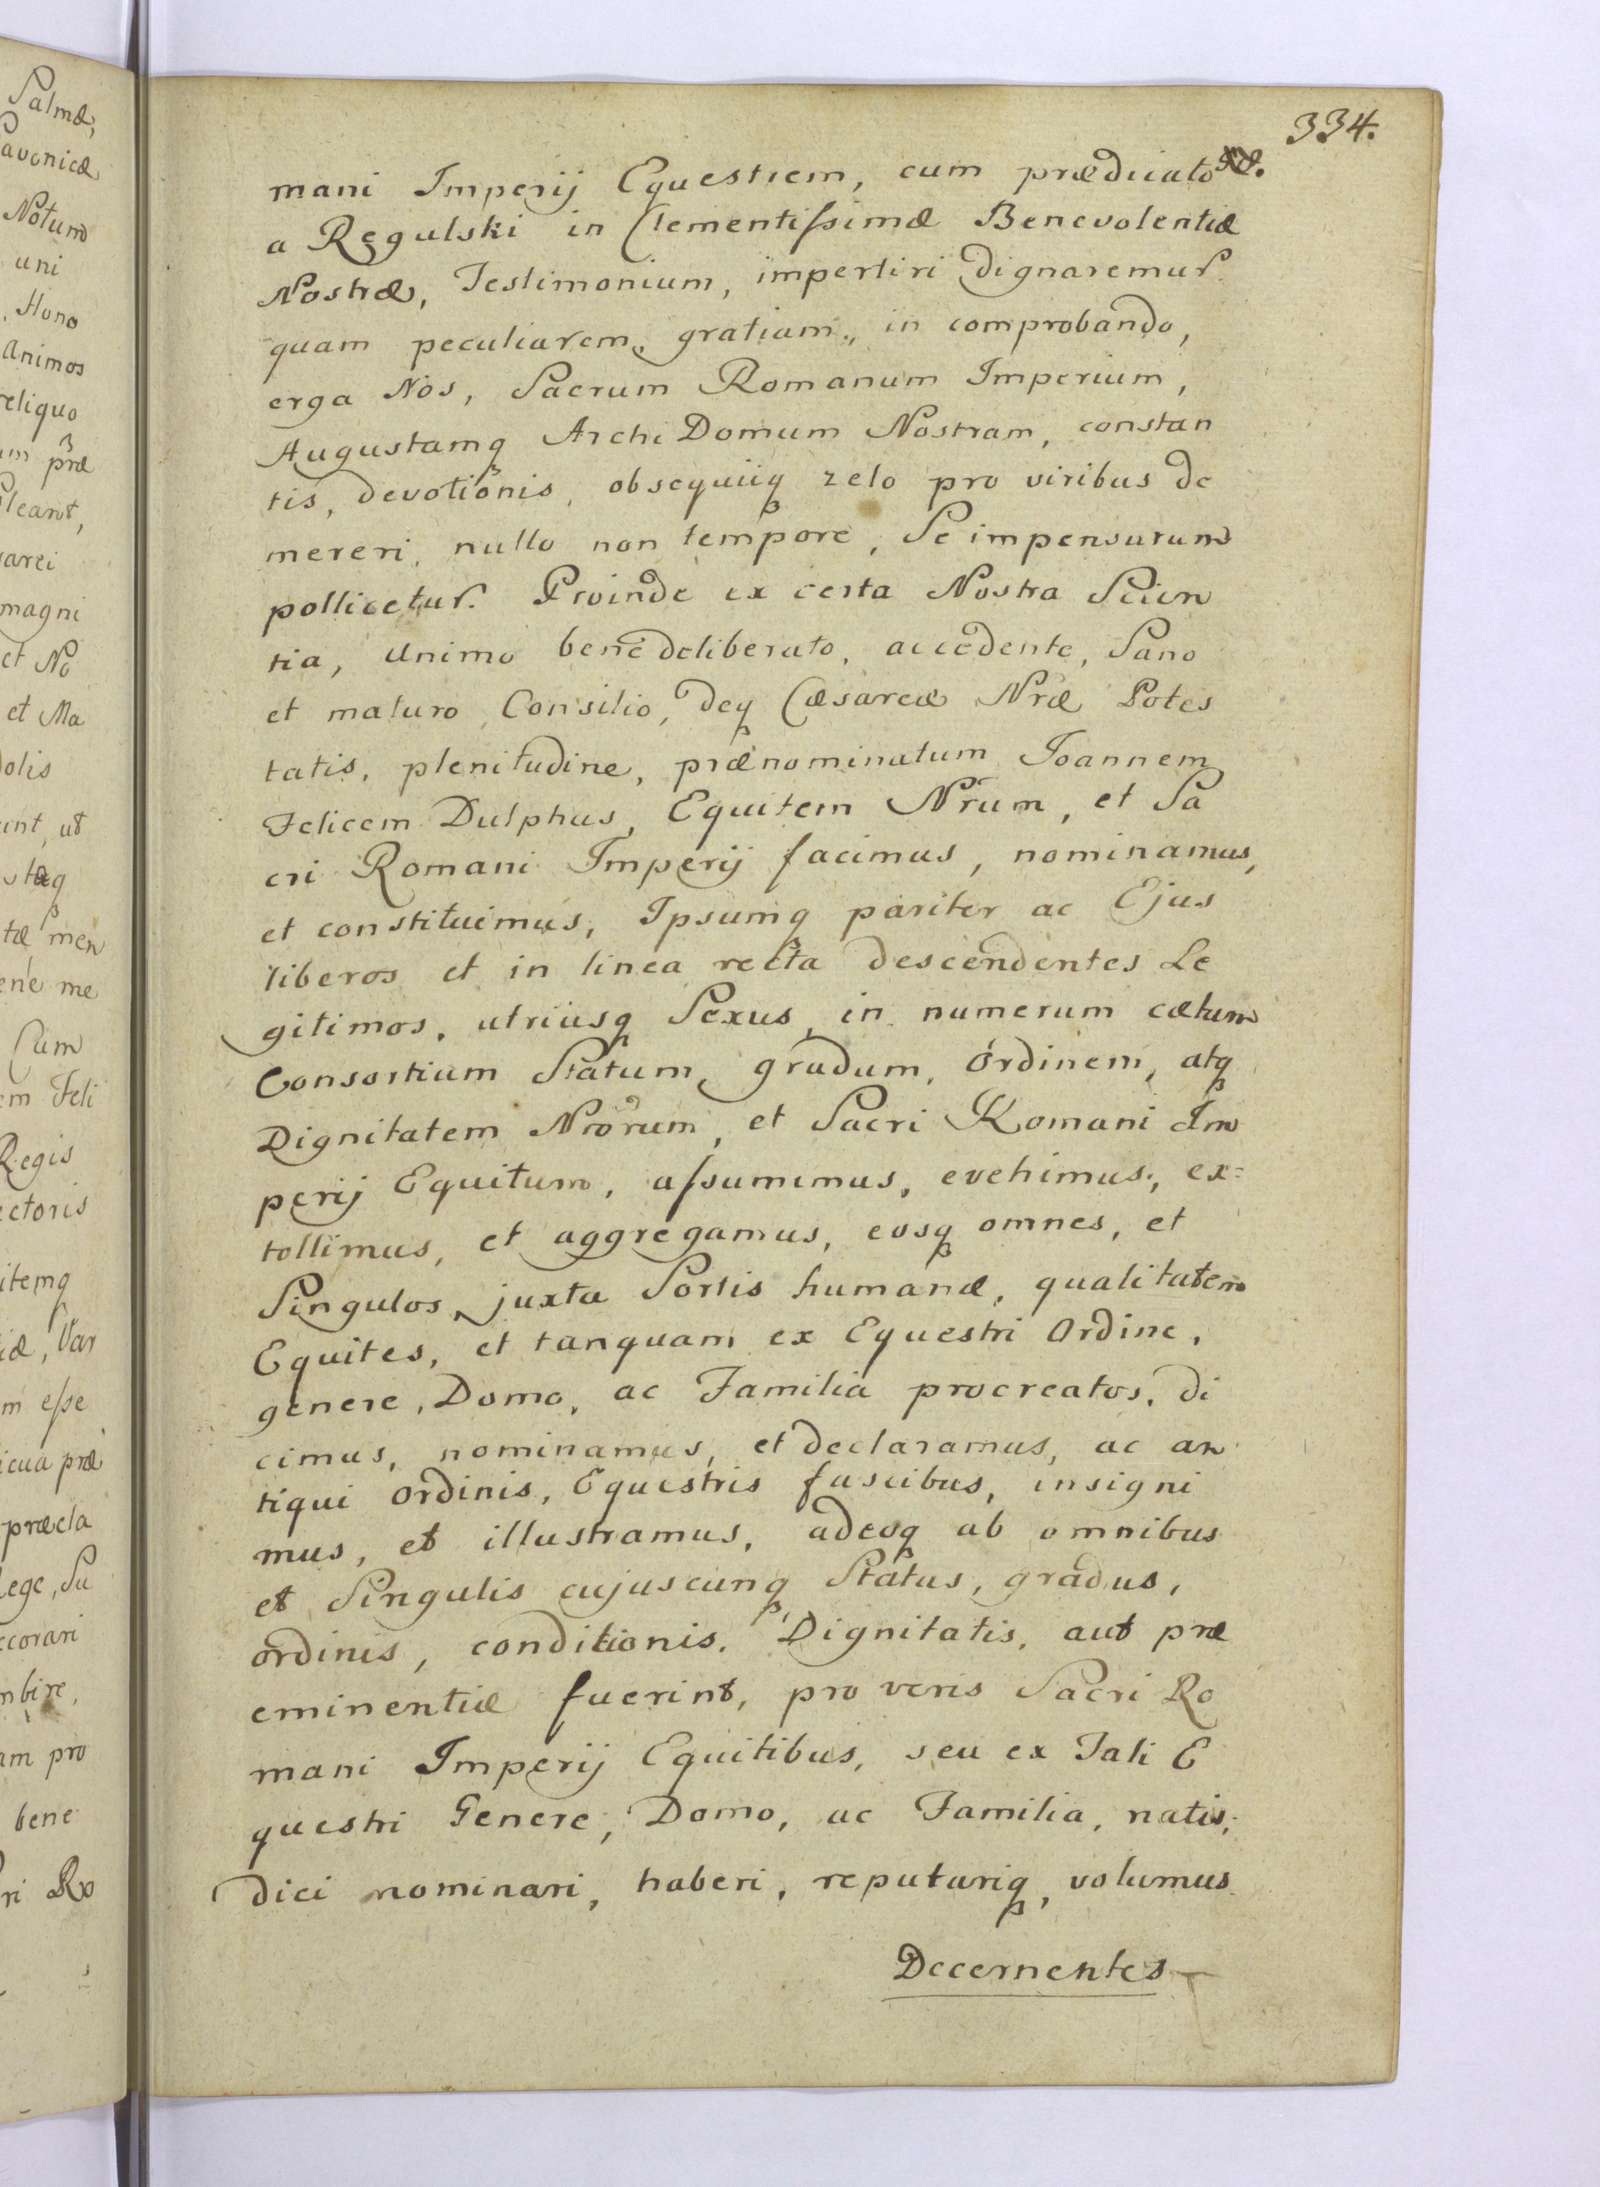 334.
mani Imperij Equestrem, cum prædicato
a Regulski in Clementissimæ Benevolentiæ
Nostræ, Testimonium, impertiri dignaremur
quam peculiarem, gratiam, in comprobando,
erga Nos, Sacrum Romanum Imperium,
Augustamq Archi Domum Nostram, constan
tis, devotionis, obsequiiq zelo pro viribus de
mereri, nullo non tempore, Se impensurum
pollicetur. Proinde ex certa Nostra Scien
tia, Animo bene deliberato, accedente, Sano
et maturo Consilio, deq Cæsareæ Nræ Potes
tatis, plenitudine, prænominatum Joannem
Felicem Dulphus, Equitem Nrum, et Sa
cri Romani Imperij facimus, nominamus,
et constituimus, Ipsumq pariter ac Ejus
liberos et in linea recta descendentes Le
gitimos, utriusq Sexus, in numerum cætum
Consortium Statum, gradum, ordinem, atq
Dignitatem Nrorum, et Sacri Romani Im
perij Equitum, assumimus, evehimus, ex=
tollimus, et aggregamus, eosq omnes, et
Singulos, juxta Sortis humanæ, qualitatem
Equites, et tanquam ex Equestri Ordine,
genere, Domo, ac Familia procreatos, di
cimus, nominamus, et declaramus, ac an
tiqui ordinis, Equestris fascibus, insigni
mus, et illustramus, adeoq ab omnibus
et Singulis cujuscunq Status, gradus,
ordinis, conditionis, Dignitatis, aut præ
eminentiæ fuerint, pro veris Sacri Ro
mani Imperij Equitibus, seu ex Tali E
questri Genere, Domo, ac Familia, natis,
dici nominari, haberi, reputariq, volumus
Decernentes
Salmæ,
avonicæ
Notum
uni
, Hono
animos
reliquo
um præ
pleant,
sarei
magni
et No
et Ma
dolis
unt, ut
tæ men
ene me
Cum
em Feli
Regis
ectoris
itemq
iæ, Var
m esse
icua præ
præcla
lege, Su
ecorari
mbire,
am pro
bene
ri Ro